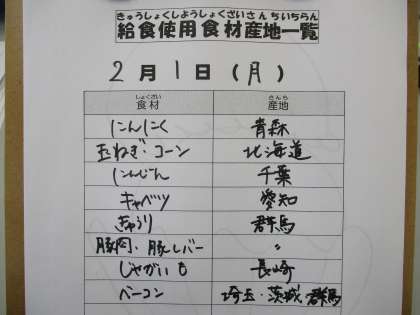 きゅうしょくしようしょくざいさんちいちらん
給食使用食材産地一覧
2月1日(月)
しょくざい さんち
食材 産地
にんにく 青森
玉ねぎ・コーン 北海道
にんじん 千葉
キャベツ 愛知
きゅうり 群馬
豚肉・豚レバー 〃
じゃがいも 長崎
ベーコン 埼玉・茨城,群馬